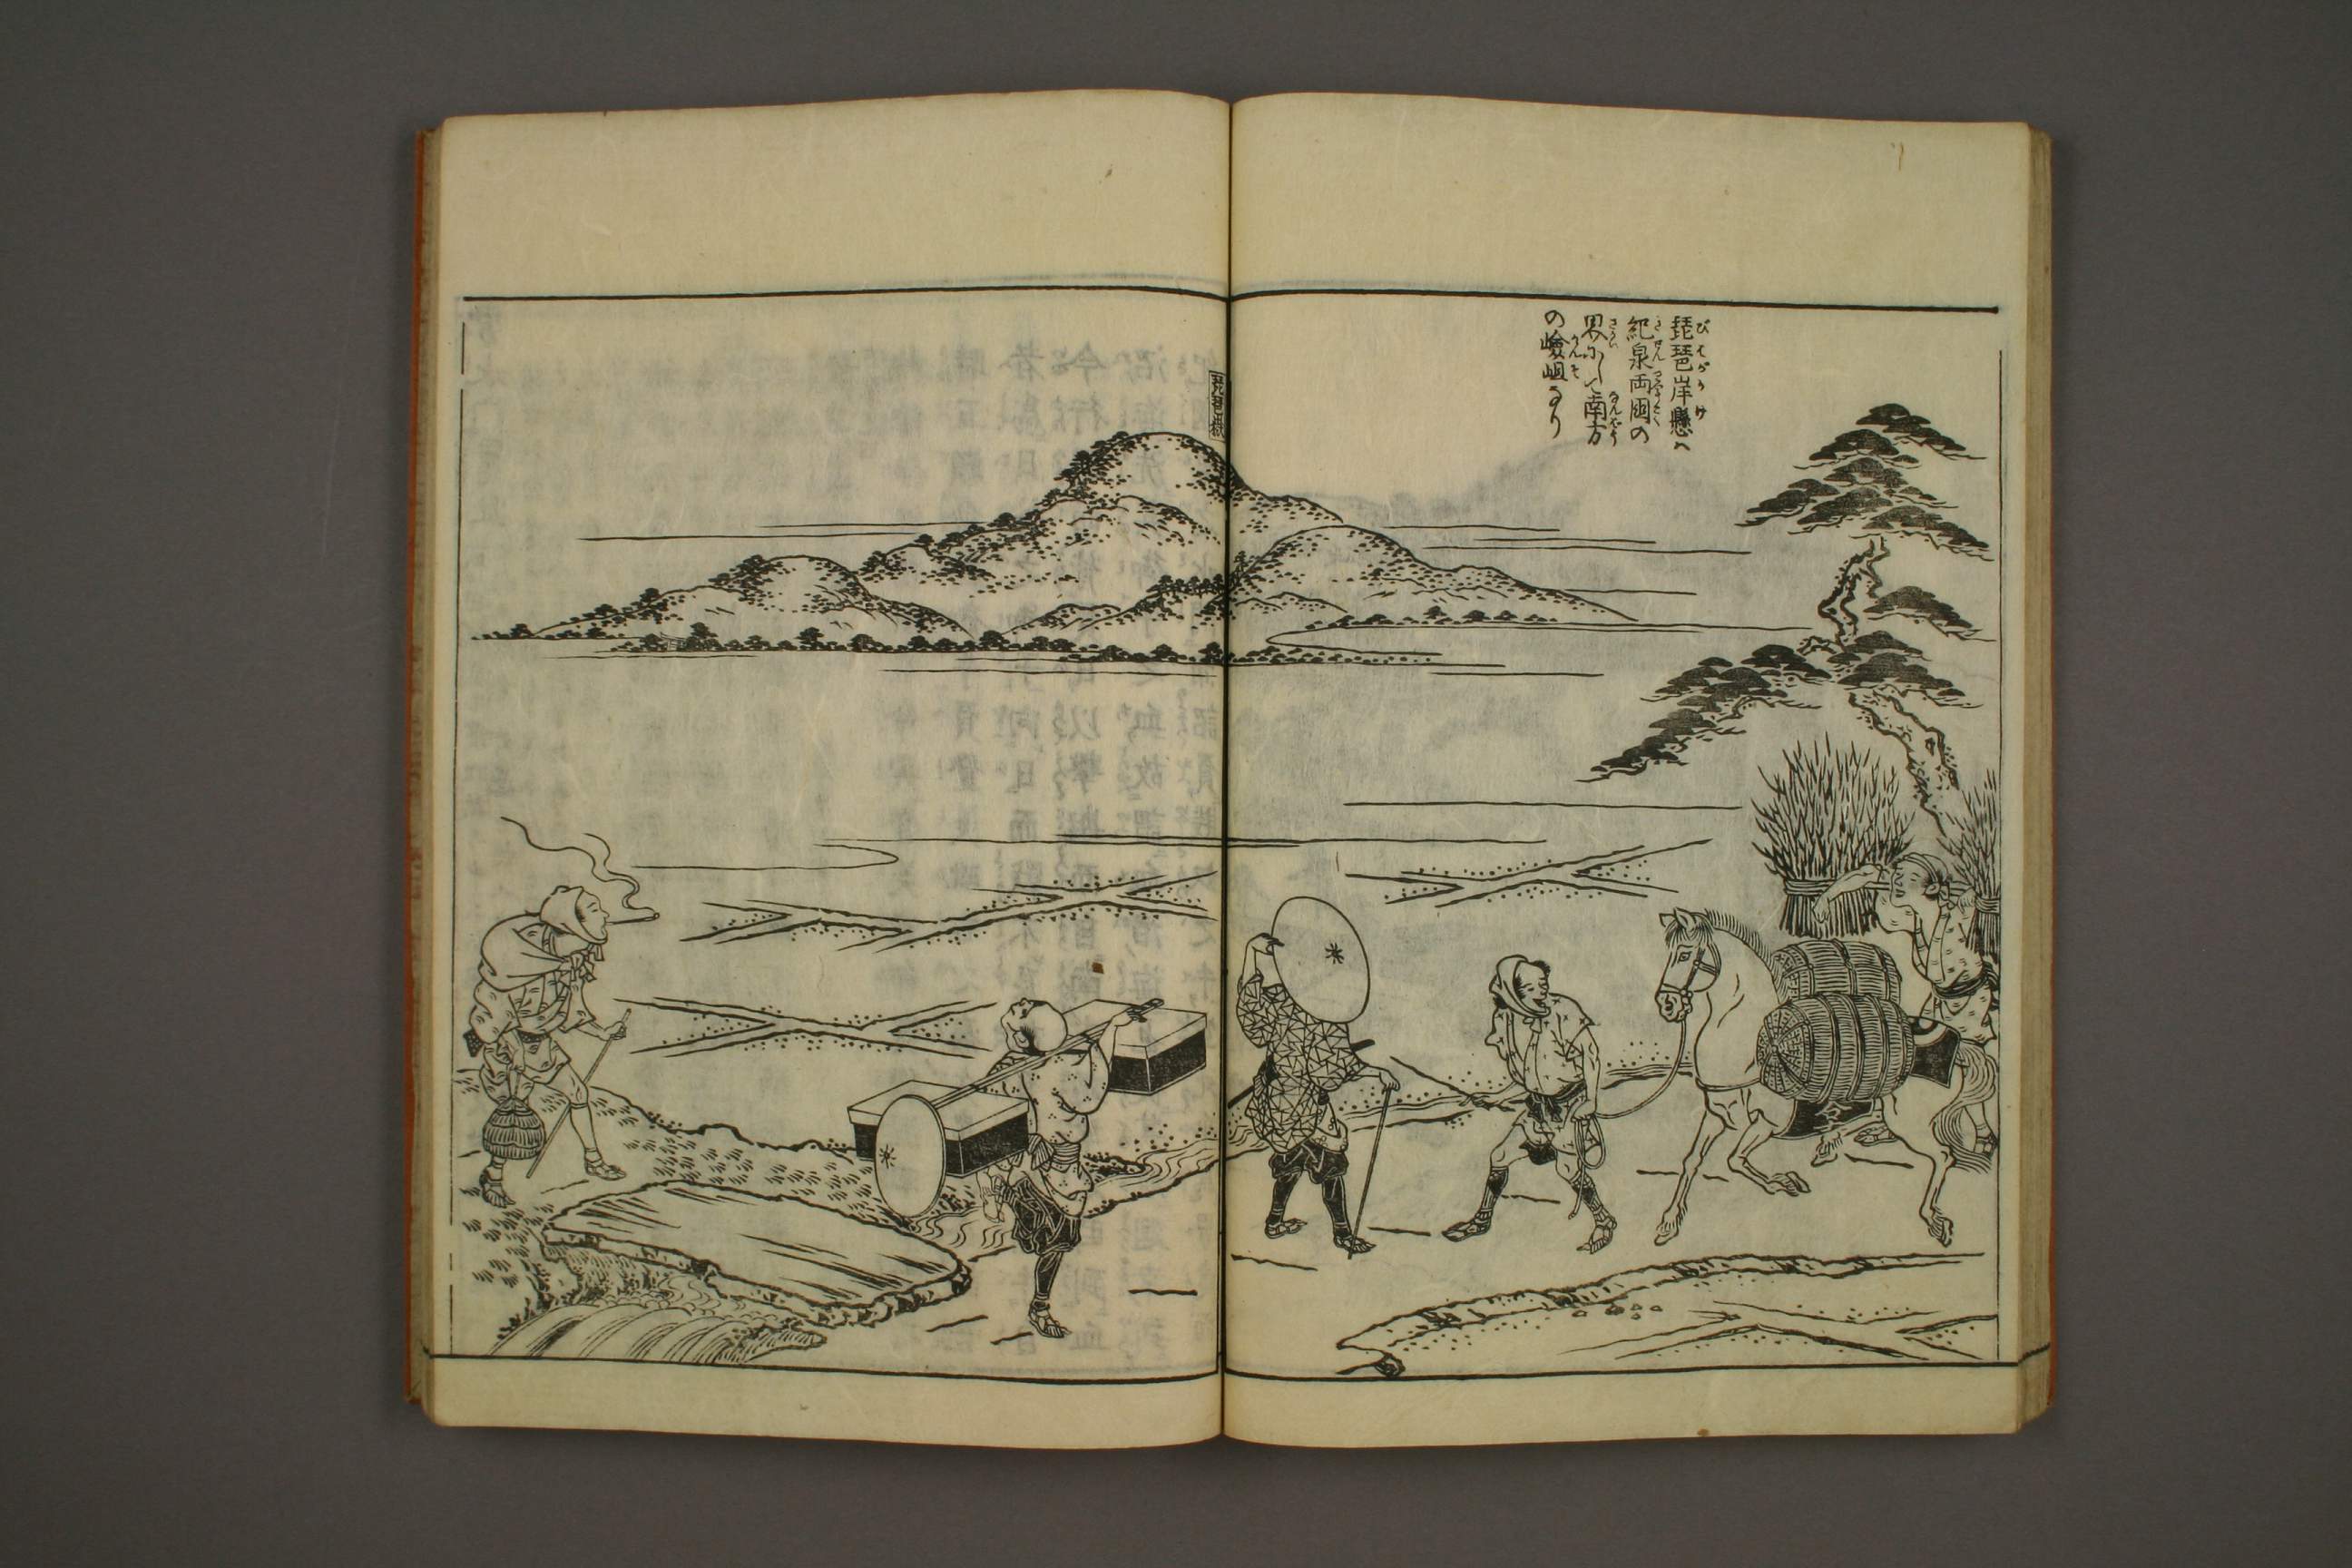 琵琶岸懸ハ
紀泉両国の
界にして南方
の嶮岨なり
琵琶嶽